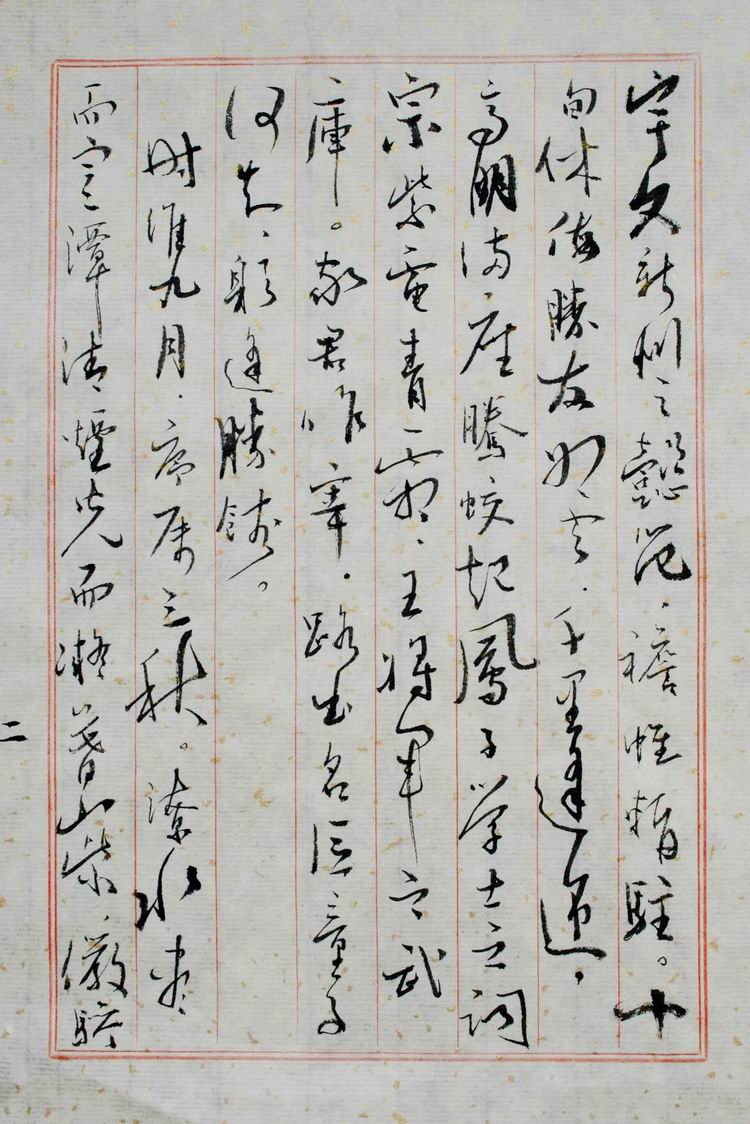 宇文新州之懿范，襜帷暫駐。十
旬休假勝友如云，千里逢迎，
高朋满座，騰蛟起鳳孟学士之詞
宗紫電青霜，王将軍之武
庫。家君作宰，路出名區童子
何知，躬逢勝餞。
时維九月，序属三秋。潦水尽
而寒潭清，煙光而凝暮山紫，儼驂
二